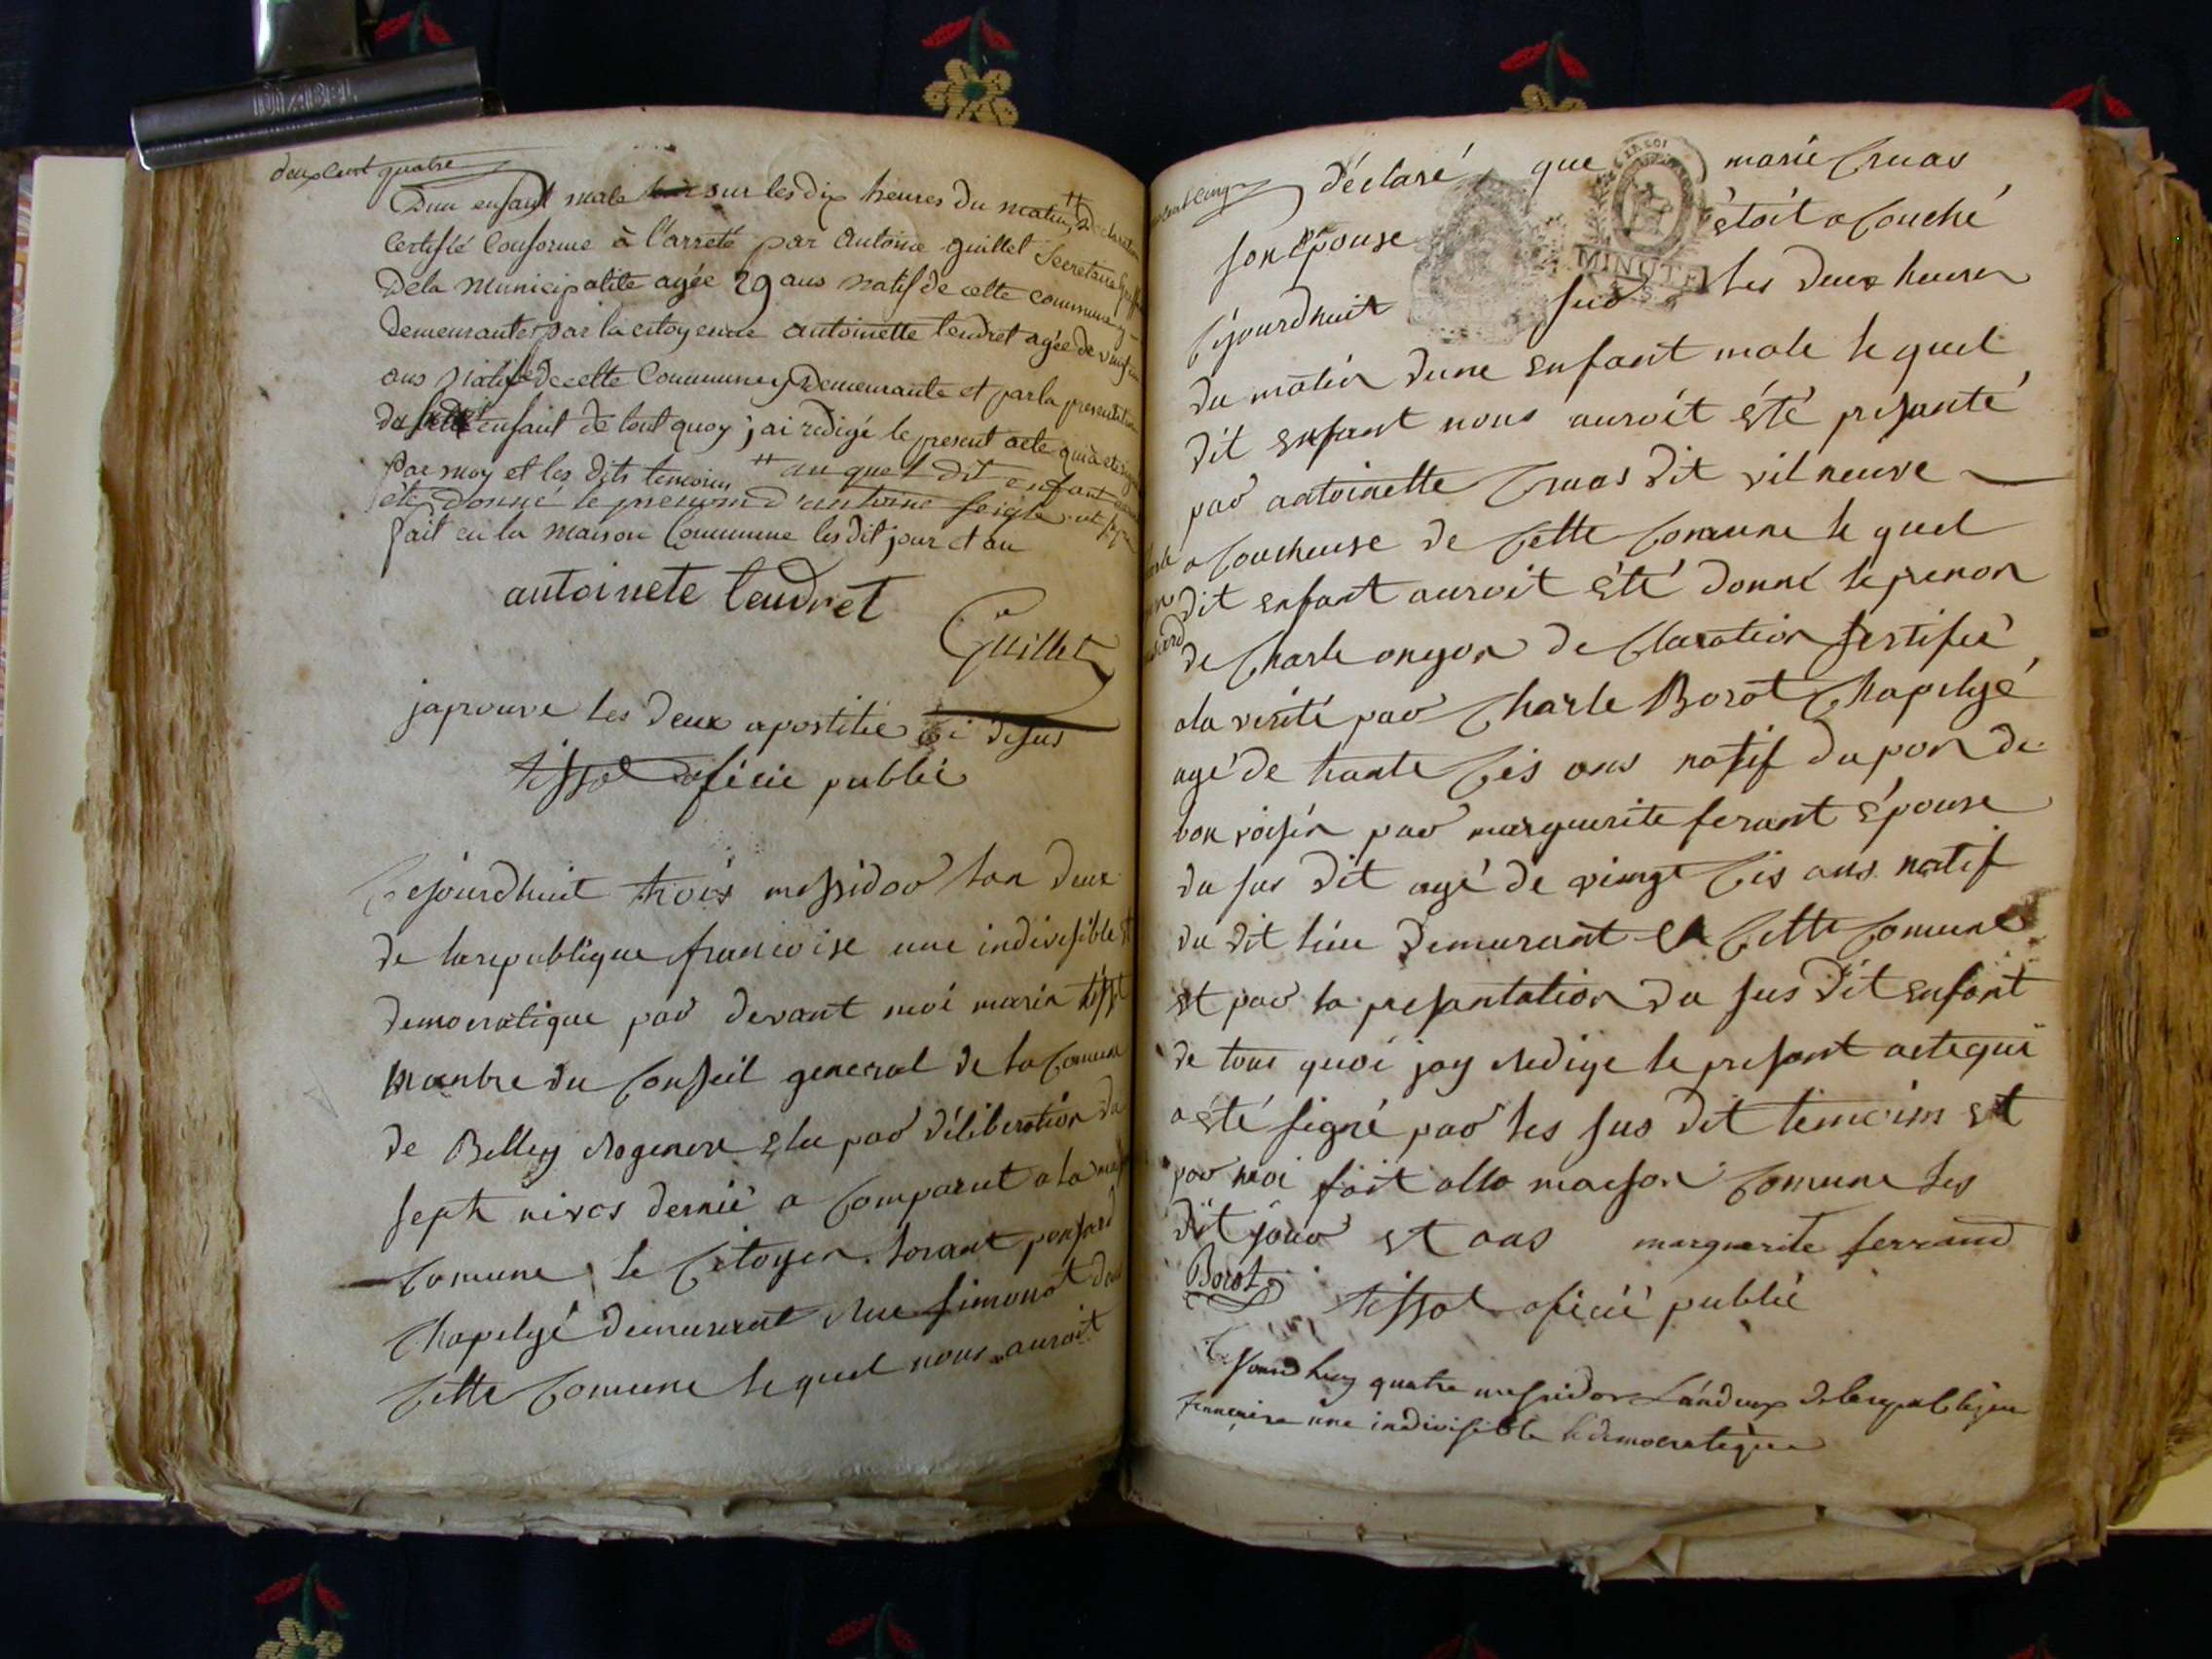 deux cent quatre
Dun enfant male sur les dix heures du matin ++ Declaration
Certifié Conforme à l'arreté par Antoine guillet Secretaire
Dela Municipalite agée 29 ans natif de cette commune y
demeurante par la citoyenne antoinette tendret agée de vingt
ans native de cette Commune y Demeurante et par la presentation
du enfant de tout quoy j'ai redigé le present acte qui a eté signé
par moy et les dits temoins ++ au quel dit enfant
été donné le prenom d'antoine
fait en la maison Commune les dit jour et an
antoinete tendret
Guillet
japrouve les deux apostilie ci desus
tissot oficié publié
Cejourdhuit trois messidor lan deux
de la republique francoise une indivisible et
democratique par devant moi marin tissot
manbre du Conseil general de la Comune
de Belley Regenere elu par déliberation du
sept nivos dernié a Comparut a la maison
Comune le Citoyen lorant ponsard
Chapelyé demeurant Rue simonot dans
Cette Comune le quel nous auroit
déclaré que marie Cruas
son épouse étoit acouché
Cejourdhuit sur les deux heures
du matin dune enfant male le quel
dit enfant nous auroit été presanté
par antoinette Cruas dit vilneuve
acoucheuse de Cette Comune le quel
dit enfant auroit été donné le prenon
de Charle de Claration Sertifié
ala verité par Charle Borot Chapelyé
agé de trante Sis ans natif du pon de
bon voisin par marguerite ferant épouse
du sus dit agé de vingt Sis ans natif
du dit lieu demurant en Cette Comune
et par la presantation du sus dit enfant
de tous quoi jay Redige le presant acte qui
a été signé par les sus dit temoins et
par moi fait alla maison Comune les
dit jour et ans marguerite ferrand
Borot
tissot oficié publié
Cejourdhuy quatre messidor Lan deux de la republique
francaise une indivisible & democratique
MINUTE